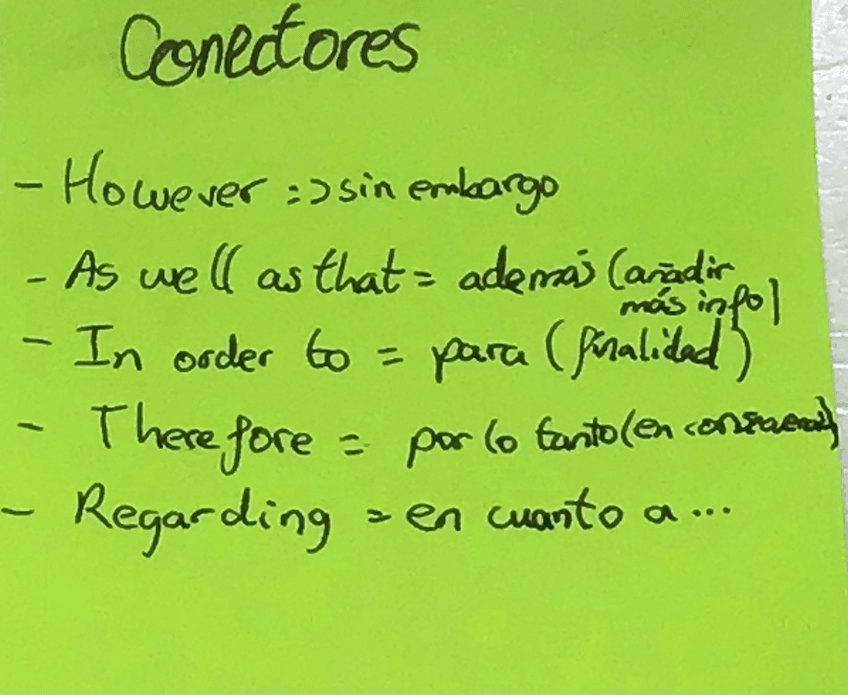 Conectores
- However => sin embargo
- As well as that = además (añadir
más info)
- In order to = para (finalidad)
- Therefore = por lo tanto (en consecuencia)
- Regarding = en cuanto a...